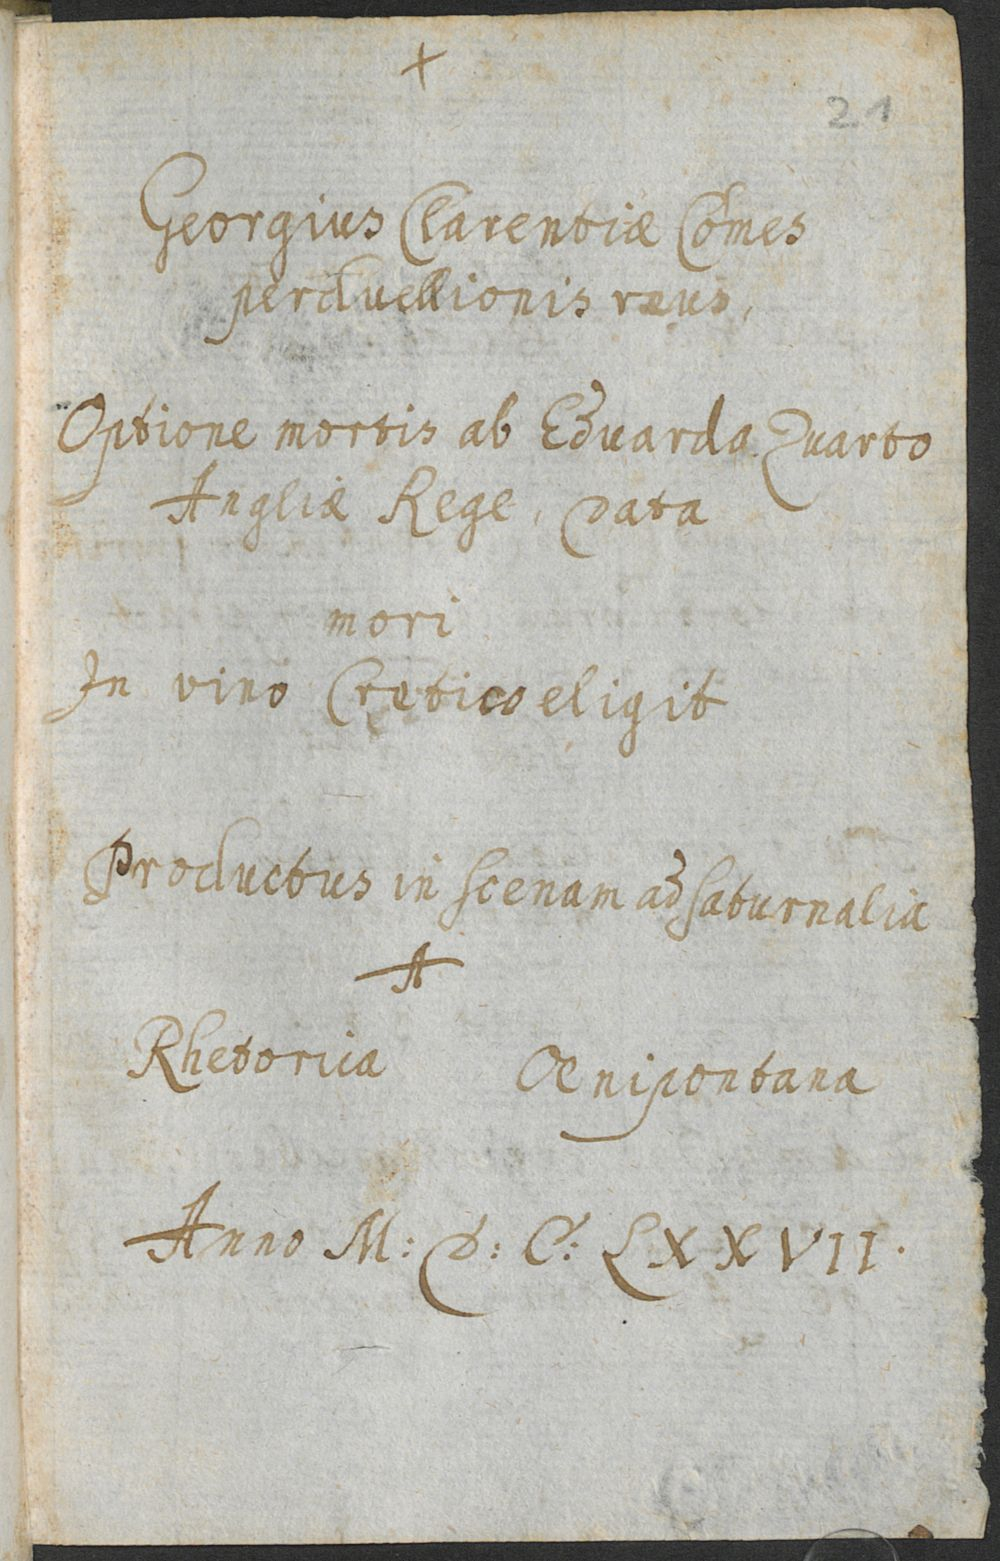 +
21
Georgius Clarentiæ Comes
perduellionis reus,
Optione mortis ab Eduardo Quarto
Angliæ Rege, data
mori
In vino Cretico eligit
Productus in scenam ad saturnalia
A
Rhetorica Oenipontana
Anno M: D: C: LXXVII.